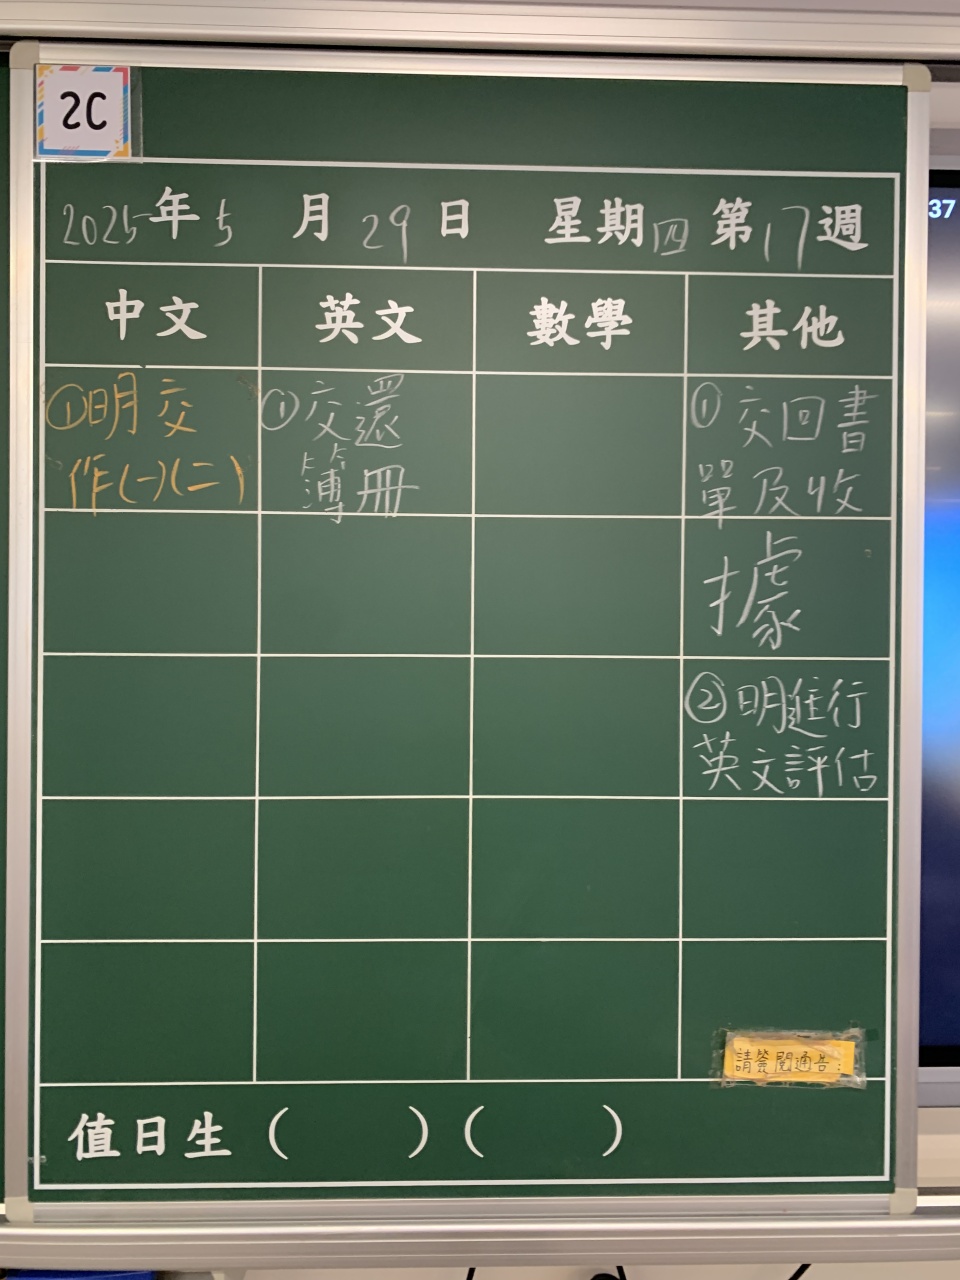 2C
2025年5月29日 星期四 第17週
中文 英文 數學 其他
①明交
作(一)(二)
①交還
簿冊
①交回書
單及收
據
②明進行
英文評估
請簽閱通告:
值日生( )( )
37